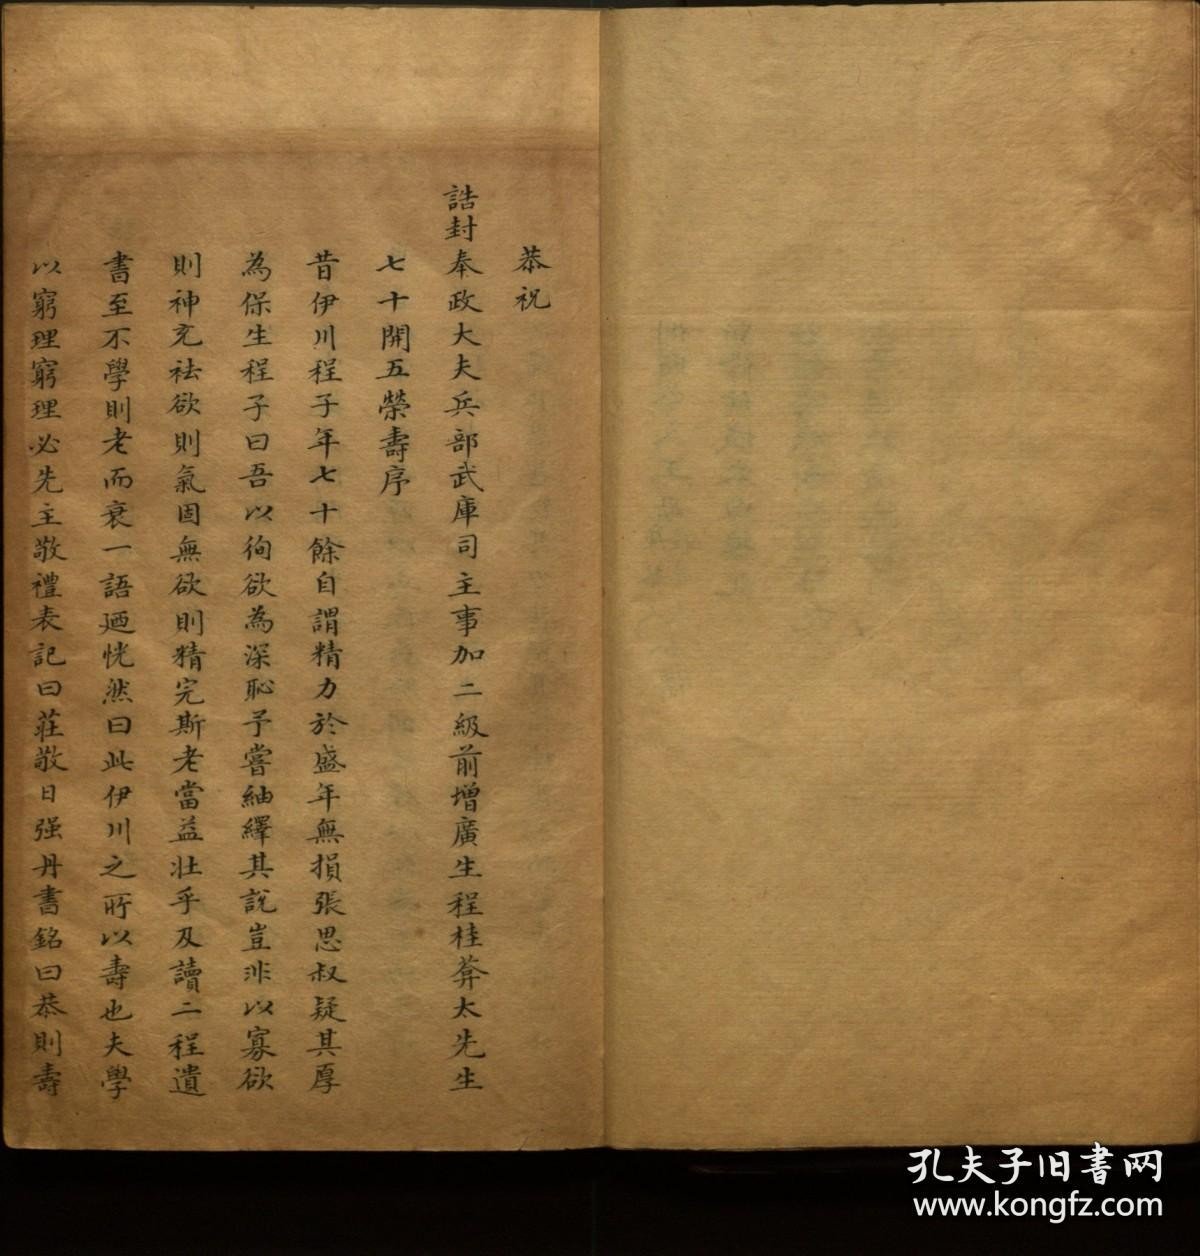 恭祝
誥封奉政大夫兵部武庫司主事加二級前增廣生程桂莽太先生
七十開五榮壽序
昔伊川程子年七十餘自謂精力於盛年無損張思叔疑其厚
為保生程子曰吾以徇欲為深恥予嘗紬繹其說豈非以寡欲
則神充祛欲則氣固無欲則精完斯老當益壯乎及讀二程遺
書至不學則老而衰一語廼恍然曰此伊川之所以壽也夫學
以窮理窮理必先主敬禮表記曰莊敬日强丹書銘曰恭則壽
孔夫子旧書网
www.kongfz.com